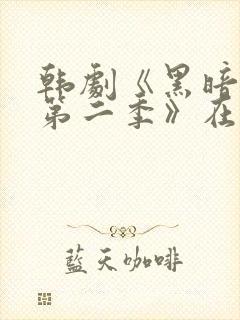 韩劇《黑暗
第二季》在
藍天咖啡